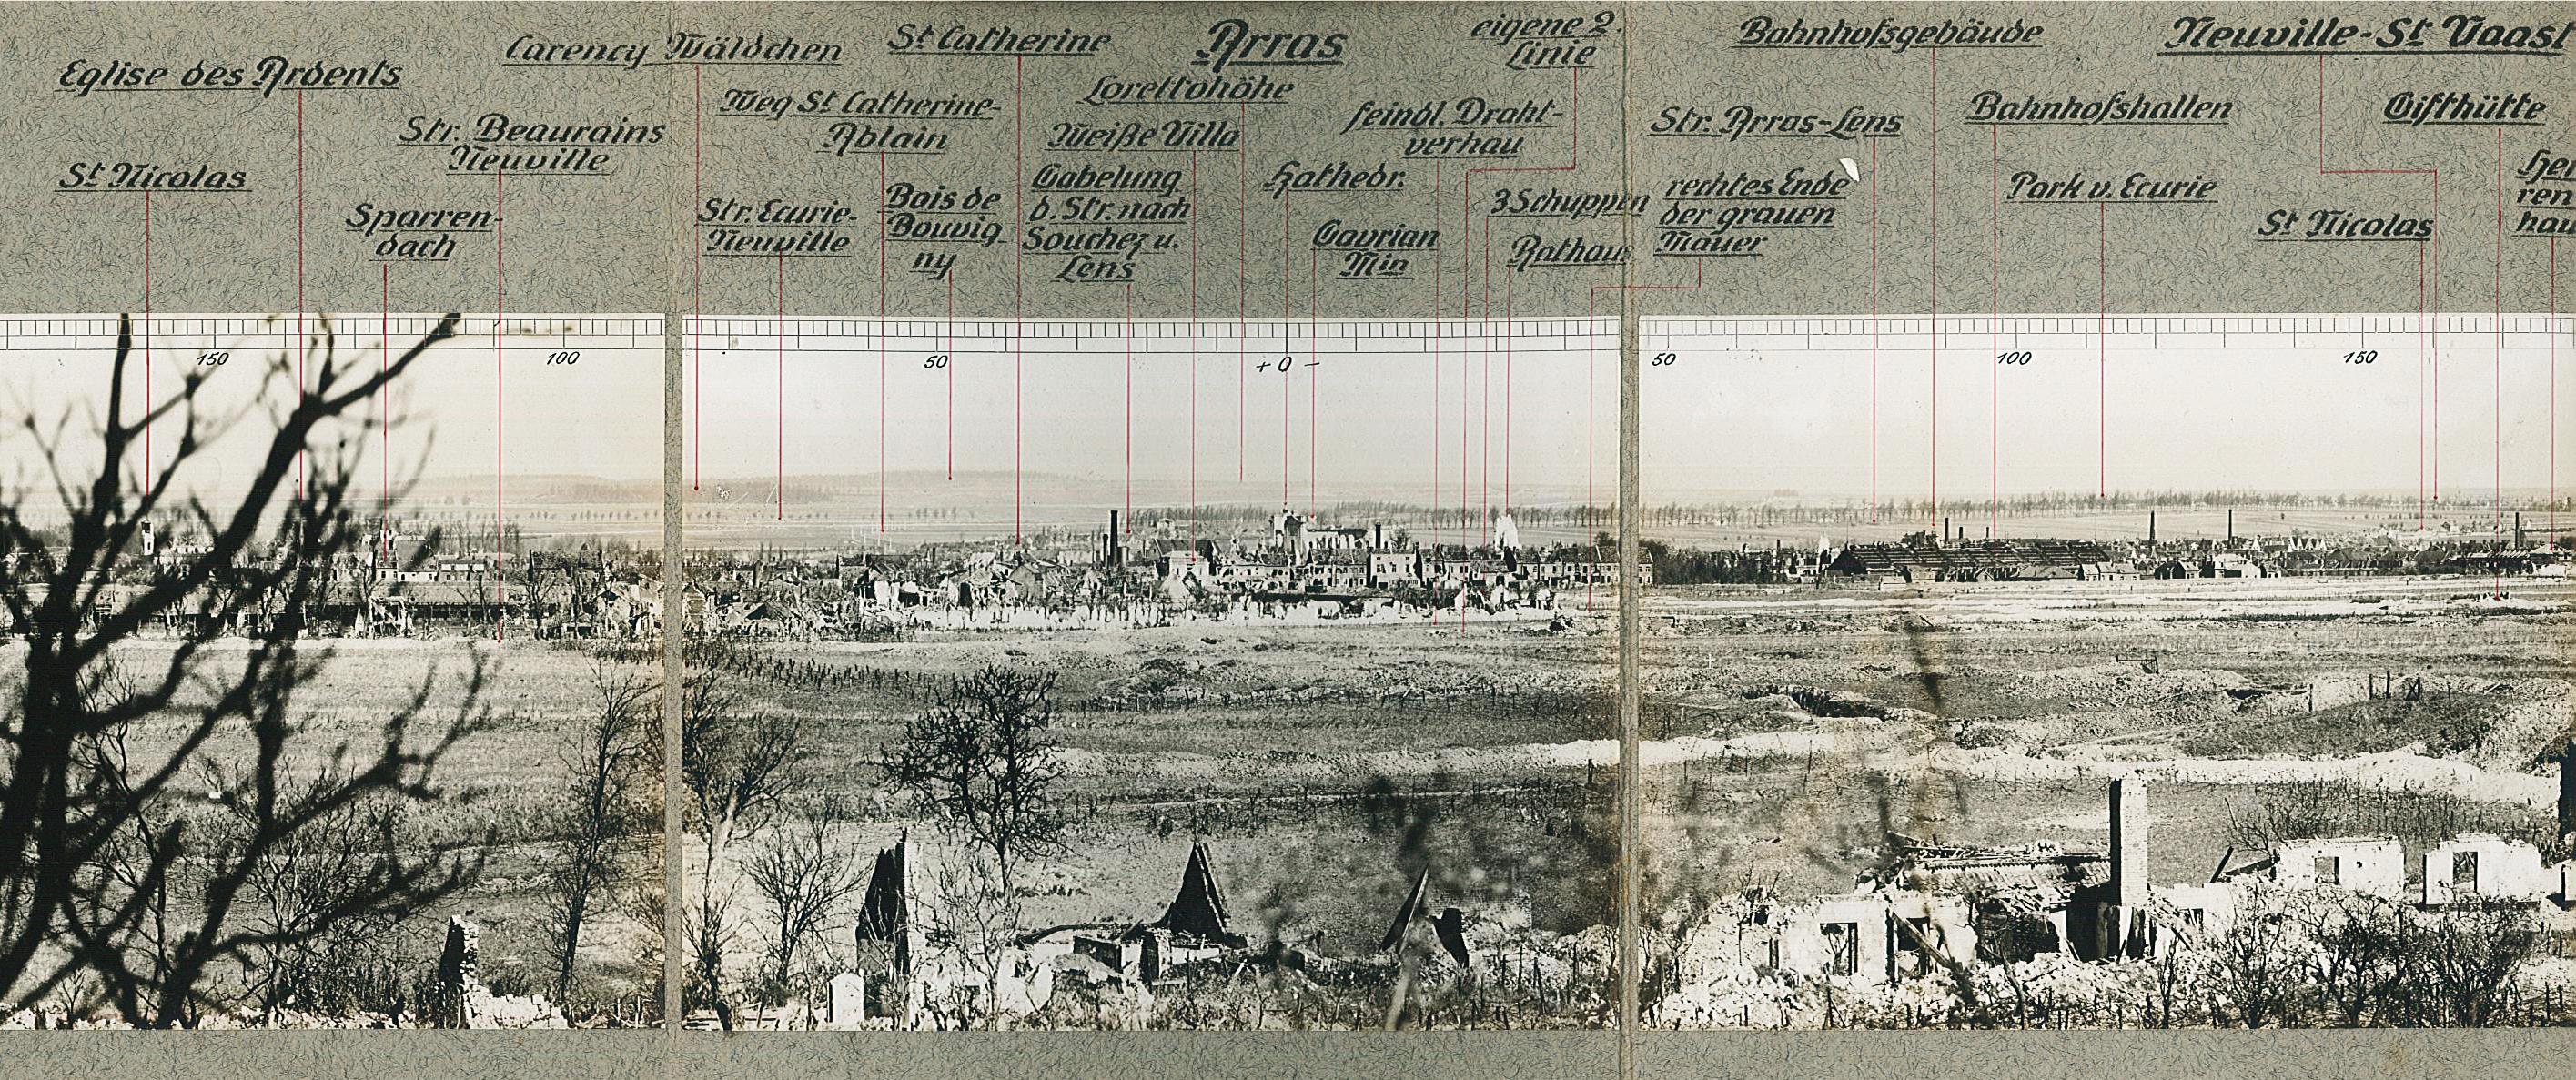 Eglise des Ardents
St Nicolas
Sparren-
dach
Str. Beaurains
Neuville
Carency Wäldchen
Weg St Catherine-
Ablain
Str. Ecurie-
Neuville
Bois de
Bouvig-
ny
St Catherine
Gabelung
d. Str. nach
Souchez u.
Lens
Arras
Lorettohöhe
Weiße Villa
Kathedr.
Gavrian
Min
feindl. Draht-
verhau
eigene 2.
Linie
3 Schuppen
Rathaus
Bahnhofsgebäude
Str. Arras-Lens
rechtes Ende
der grauen
Mauer
Bahnhofshallen
Park v. Ecurie
Neuville-St Vaast
St Nicolas
Gifthütte
Her
ren
hau
150
100
50
+ 0 -
50
100
150